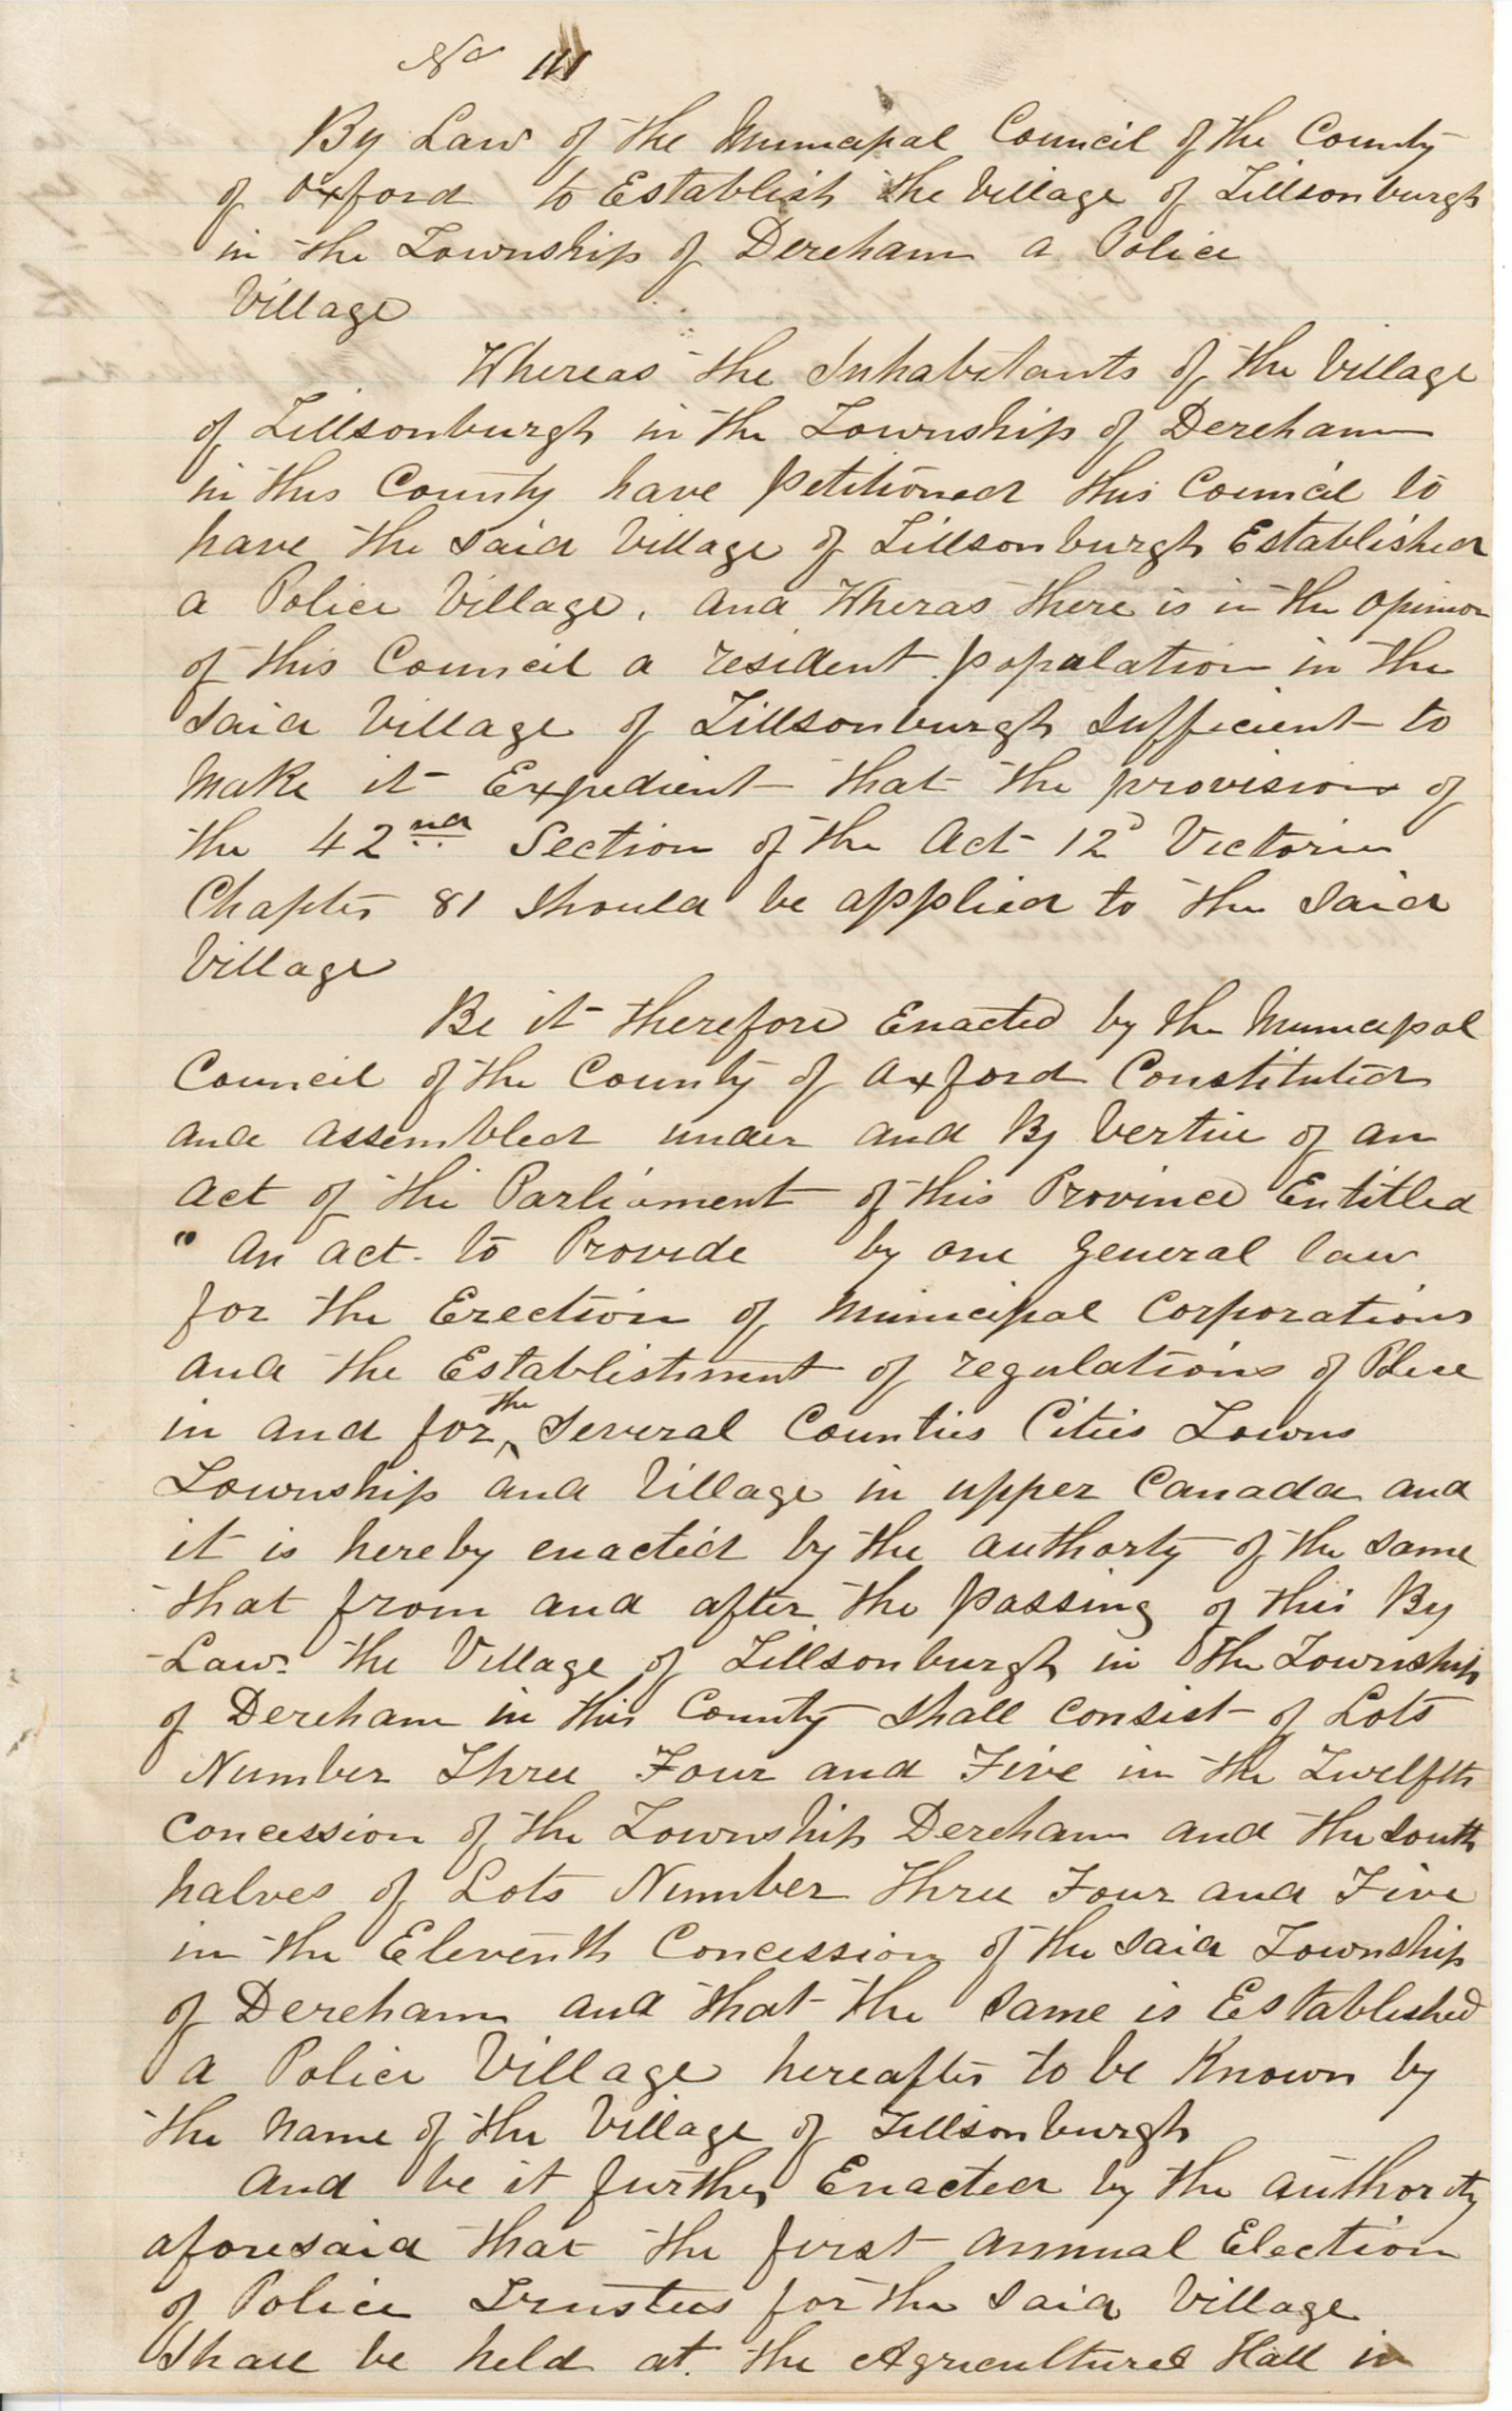 No 111
By Law of the Municipal Council of the County
of Oxford to Establish the Village of Tillsonburgh
in the Township of Dereham a Police
Village
Whereas the Inhabitants of the Village
of Tillsonburgh in the Township of Dereham
in this County have petitioned this Council to
have the said Village of Tillsonburgh Established
a Police Village, and Wheras there is in the opinion
of this Council a resident popalation in the
said Village of Tillsonburgh sufficient to
make it Expedient that the provision of
the 42nd Section of the Act 12 Victoria
Chapter 81 should be applied to the said
Village
Be it therefore Enacted by the Municipal
Council of the County of Oxford Constituted
and assembled under and By Vertue of an
act of the Parliament of this Province Entitled
" An act to Provide by one general law
for the Erection of Municipal Corporations
and the Establishment of regulations of Police
in and for the Several Counties Cities Towns
Township and Village in upper Canada and
it is hereby enacted by the authorty of the same
that from and after the passing of this By
Law the Village of Tillsonburgh in the Township
of Dereham in this County shall consist of Lots
Number Three Four and Five in the Twelfth
concession of the Township Dereham and the south
halves of Lots Number Three Four and Five
in the Eleventh Concession of the said Township
of Dereham and that the same is Established
a Police Village hereafter to be Known by
the name of the Village of Tillsonburgh
And be it further Enacted by the authority
aforesaid that the first annual Election
of Police Trustees for the said Village
shall be held at the Agricultural Hall in